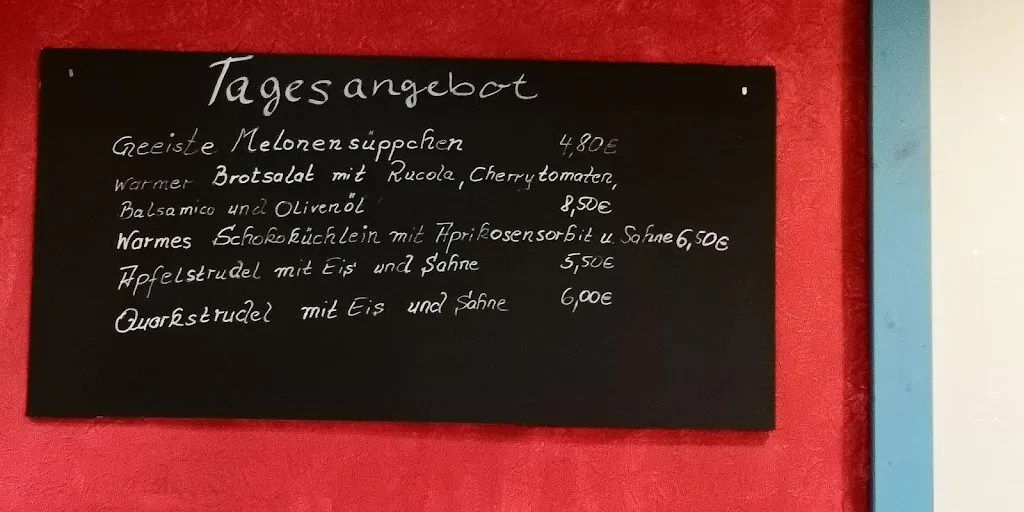 Tagesangebot
Geeiste Melonensüppchen 4,80€
Warmer Brotsalat mit Rucola, Cherrytomaten,
Balsamico und Olivenöl 8,50€
Warmes Schokoküchlein mit Aprikosensorbit u. Sahne 6,50€
Apfelstrudel mit Eis und Sahne 5,50€
Quarkstrudel mit Eis und Sahne 6,00€